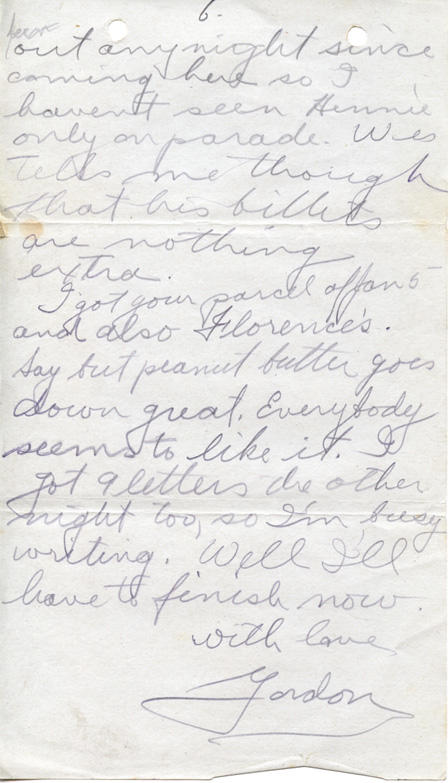 6.
been
out any night since
coming here so I
haven't seen Hennie
only on parade. Wes
tells me though
that his billits
are nothing
extra.
I got your parcel of Jan 5
and also Florence's.
Say but peanut butter goes
down great. Everybody
seems to like it. I
got 9 letters the other
night too, so I'm busy
writing. Well I'll
have to finish now.
with love
Gordon